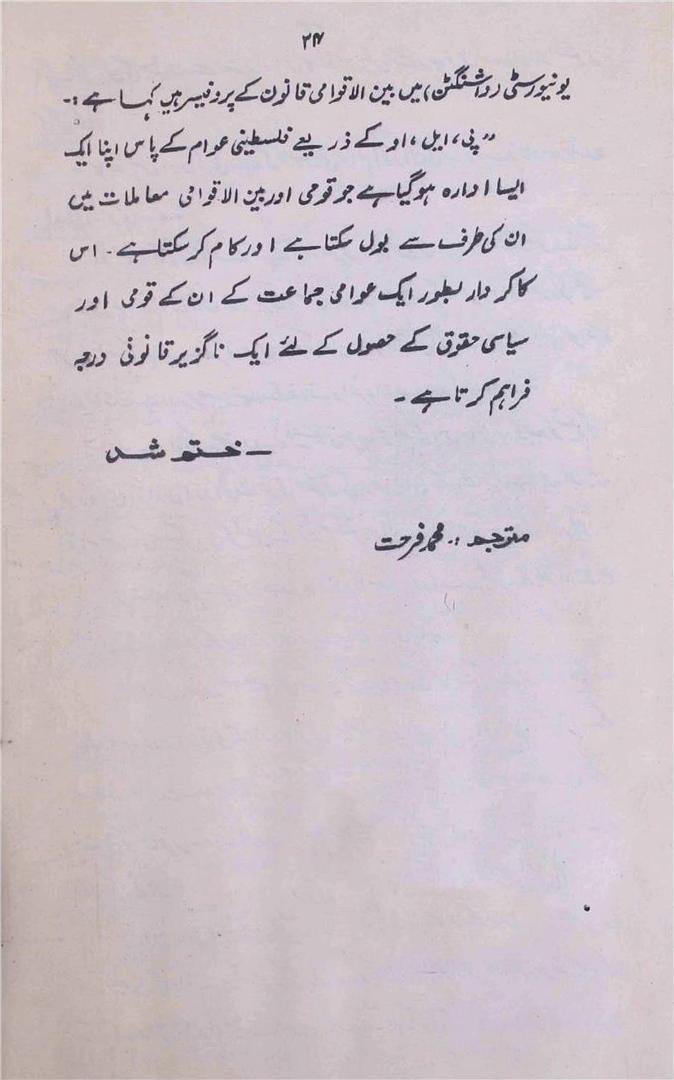 ۳۷
یونیورسٹی (واشنگٹن) میں بین الاقوامی قانون کے پروفیسر ہیں کہا ہے :-
"پی، ایل، او کے ذریعے فلسطینی عوام کے پاس اپنا ایک
ایسا ادارہ ہوگیا ہے جو قومی اور بین الاقوامی معاملات میں
ان کی طرف سے بول سکتا ہے اور کام کر سکتا ہے۔ اس
کا کردار بطور ایک عوامی جماعت کے ان کے قومی اور
سیاسی حقوق کے حصول کے لئے ایک ناگزیر قانونی درجہ
فراہم کرتا ہے۔
— ختم شد
مترجم :۔ محمد فرحت